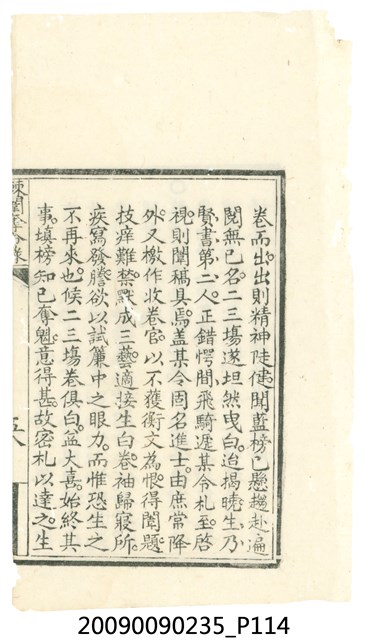 卷而出。出則精神陡健。聞藍榜已懸。趨赴遍
閱無己名。二三塲遂坦然曳白。迨揭曉生乃
賢書第二人。正錯愕間。飛騎遞某令札至。啓
視則闈稿具焉。蓋某令固名進士。由庶常降
外。又檄作收卷官。以不獲衡文為恨。得闈題
技痒難禁。戲成三藝。適接生白卷。袖歸寢所。
疾寫發謄。欲以試簾中之眼力。而惟恐生之
不再來也。候二三塲卷俱白。益大喜。始終其
事。填榜知已奪魁。意得甚。故密札以達之。生
棘闈奪命錄
五八
20090090235_P114